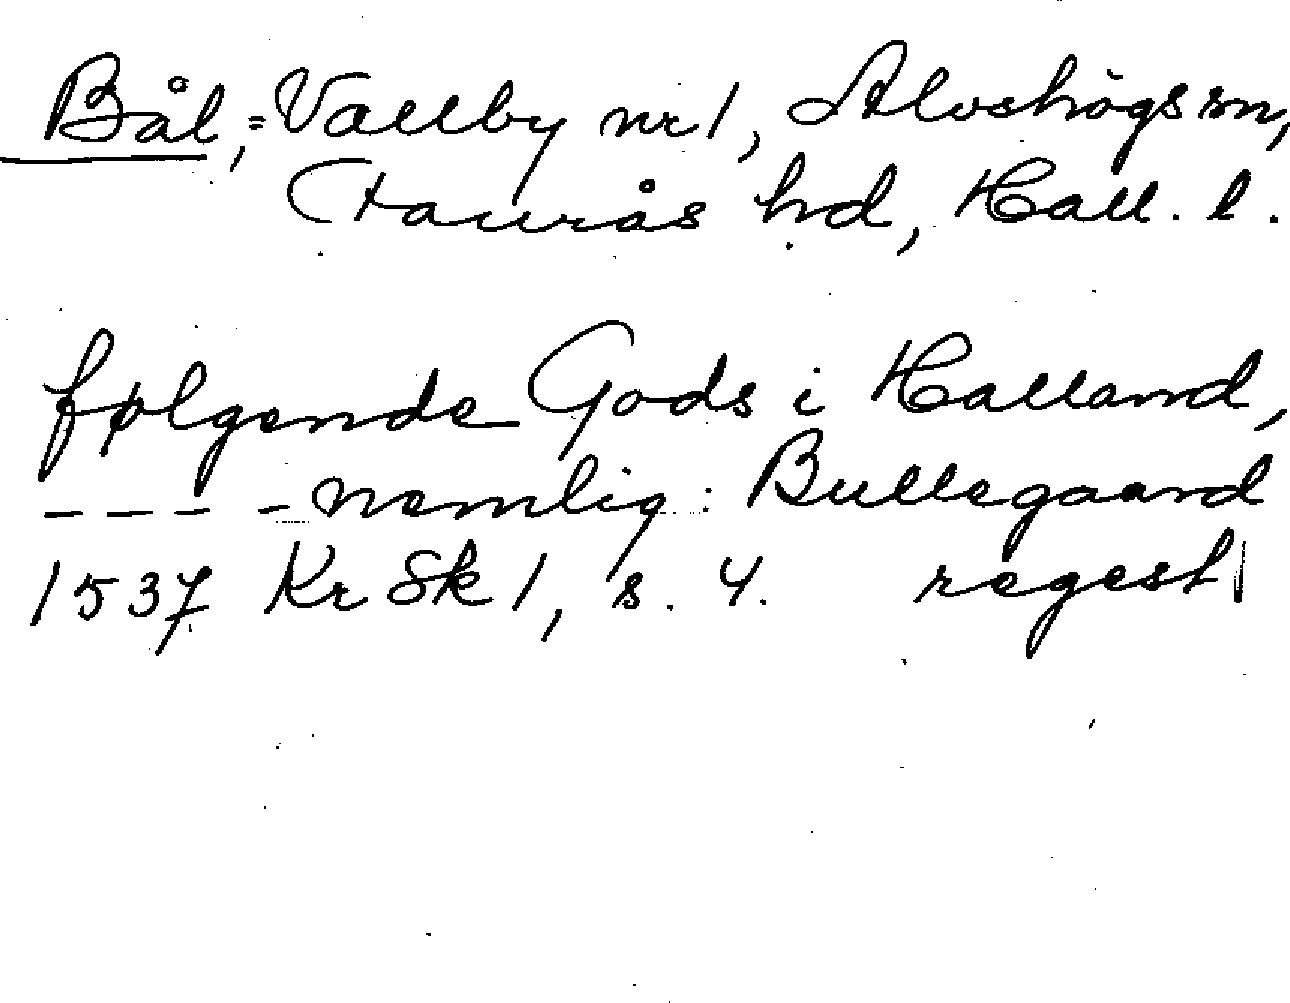 Bål, = Vallby nr 1, Alvshögs sn,
Faurås hd, Hall. l.
følgende Gods i Halland,
- - - - nemlig: Bullegaard
1537 KrSk 1, s. 4. regest